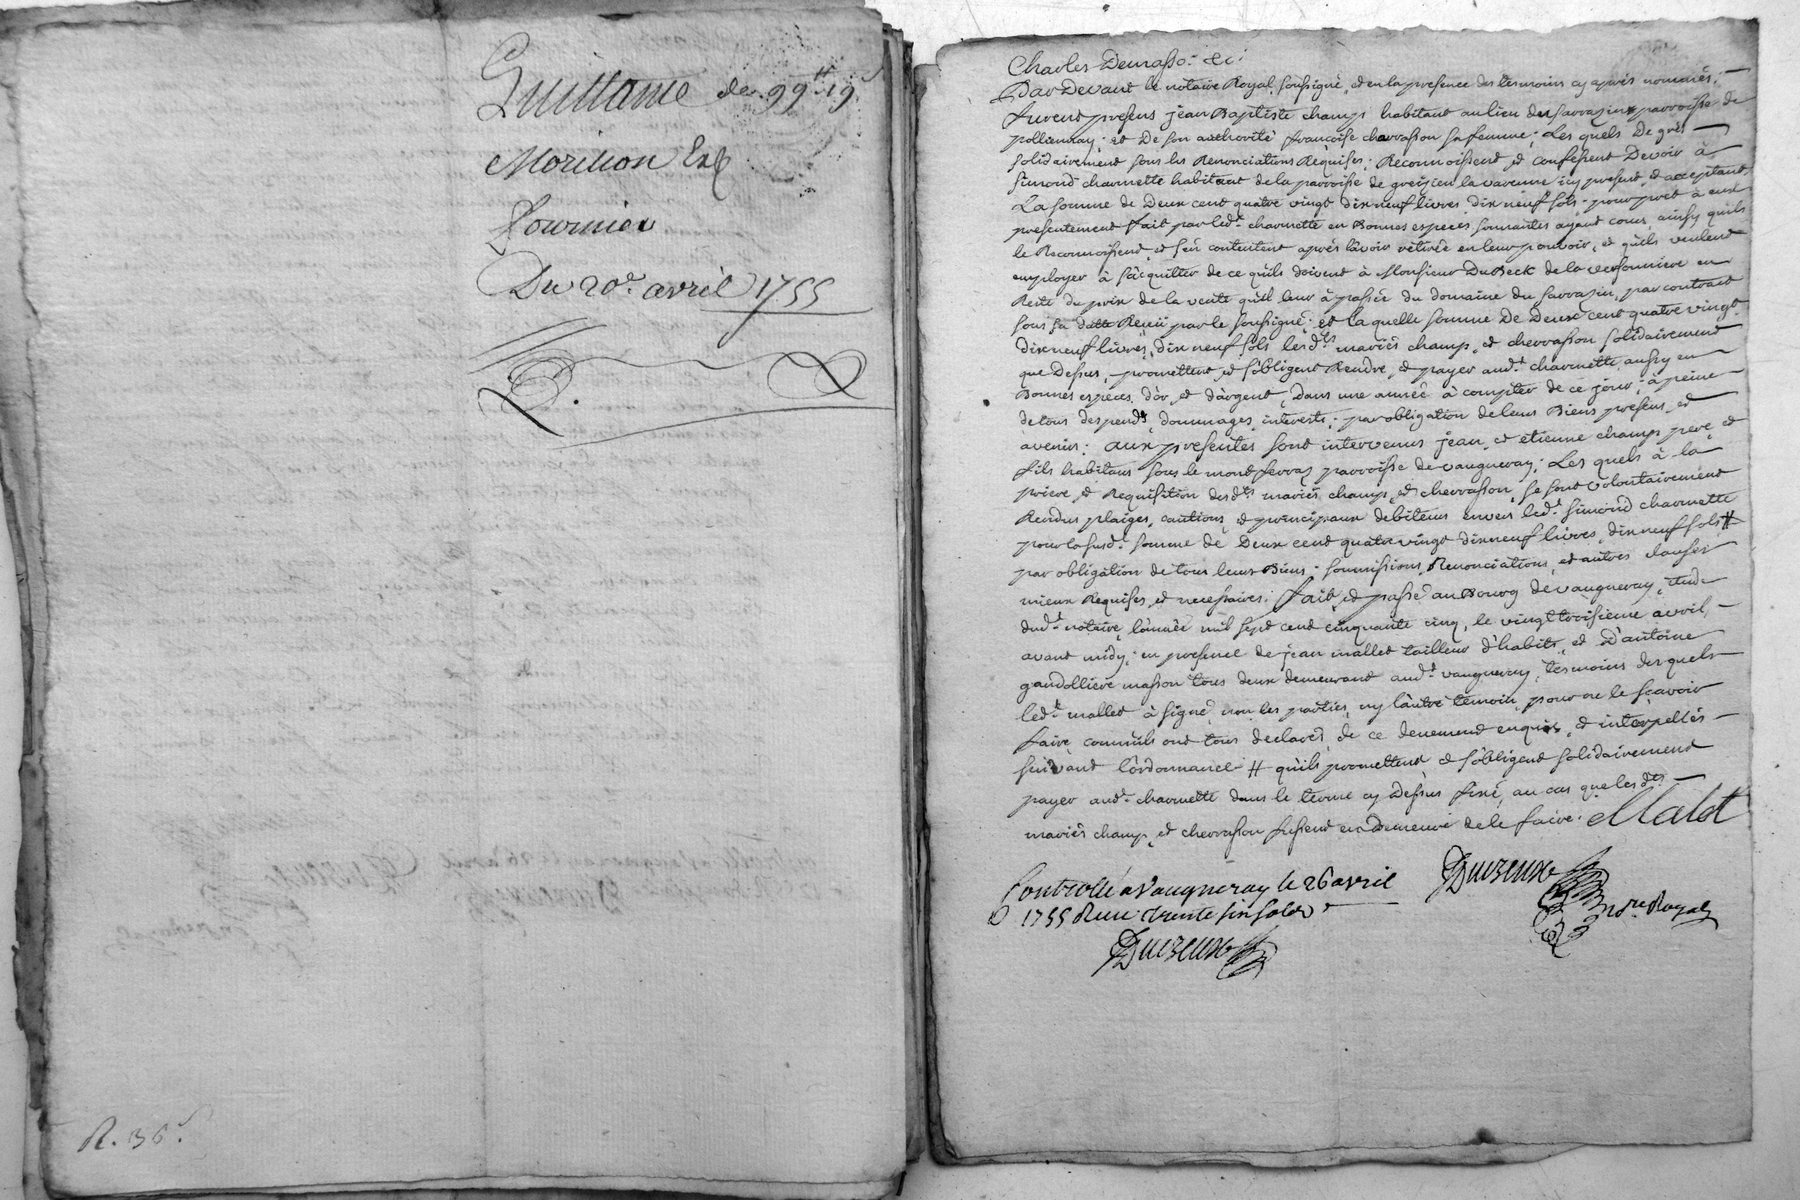 Guillaume de 99tt 19s
Morillon
Fournier
Du 20e. avril 1755
R. 36s.
Charles
Par Devant le notaire Royal soussigné, et en la presence des tesmoins cy apres nommés;
furent presens jean Baptiste champ habitant au lieu du sarrazin parroisse de
pollionnay; et De son authorité françoise chavasson sa femme; Les quels De gré
solidairement sous les Renonciations Requises: Reconnoissent et confessent Devoir à
simond charmette habitant de la parroisse de grezieu la varenne icy present, et acceptant,
La somme de Deux cent quatre vingt dix neuf livres dix neuf sols pour pret à eux
presentement fait par led.t charmette en Bonnes especes sonnantes ayant cours, ainsy quils
le Reconnoissent, et s'en contentent après l'avoir retirée en leur pouvoir, et quils veulent
employer à s'acquitter de ce quils doivent à Monsieur DuBeck de la versonniere en
Reste du prix de la vente qu'il leur à passée du domaine du sarrazin, par contract
sous sa datte Receü par le soussigné; et la quelle somme De Deux cent quatre vingt
dix neuf livres, dix neuf sols les d.ts mariés champ, et chevasson solidairement
que Dessus, promettent et s'obligent Rendre, et payer aud.t charmette aussy en
Bonnes especes d'or, et d'argent, Dans une année à compter de ce jour à peine
de tous despends, dommages, interests; par obligation de leurs Biens presens, et
avenir: aux presentes sont intervenus jean, et etienne champ pere, et
fils habitans sous le mont ferraz parroisse de vaugneray; Les quels à la
priere, et Requisition desd.ts mariés champ, et chevasson, se sont volontairement
Rendus plaiges, cautions, et principaux debiteurs envers led.t simond charmette
pour la susd.e somme de Deux cent quatre vingt dix neuf livres, dix neuf sols #
par obligation de tous leurs Biens: soumissions, Renonciations, et autres clauses
mieux Requises, et necessaires: fait, et passé au Bourg de vaugneray, etude
dud.t notaire, l'année mil sept cent cinquante cinq, le vingt troisieme avril,
avant midy; en presence de jean mallet tailleur d'habits, et D'antoine
gandolliere masson tous deux demeurant aud.t vaugneray, tesmoins des quels
led.t mallet à signé, non les parties, ny l'autre temoin, pour ne le sçavoir
faire, comm'ils ont tous declaré, de ce deuement enquis, et interpellés
suivant l'ordonnance # quils promettent et s'obligent solidairement
payer aud.t charmette dans le terme cy Dessus fixé, au cas que les d.ts
mariés champ, et chevasson fussent en demeure de le faire. Malet
Controllé a Vaugneray le 26 avril
1755 Receu trente six sols
n.re Royal